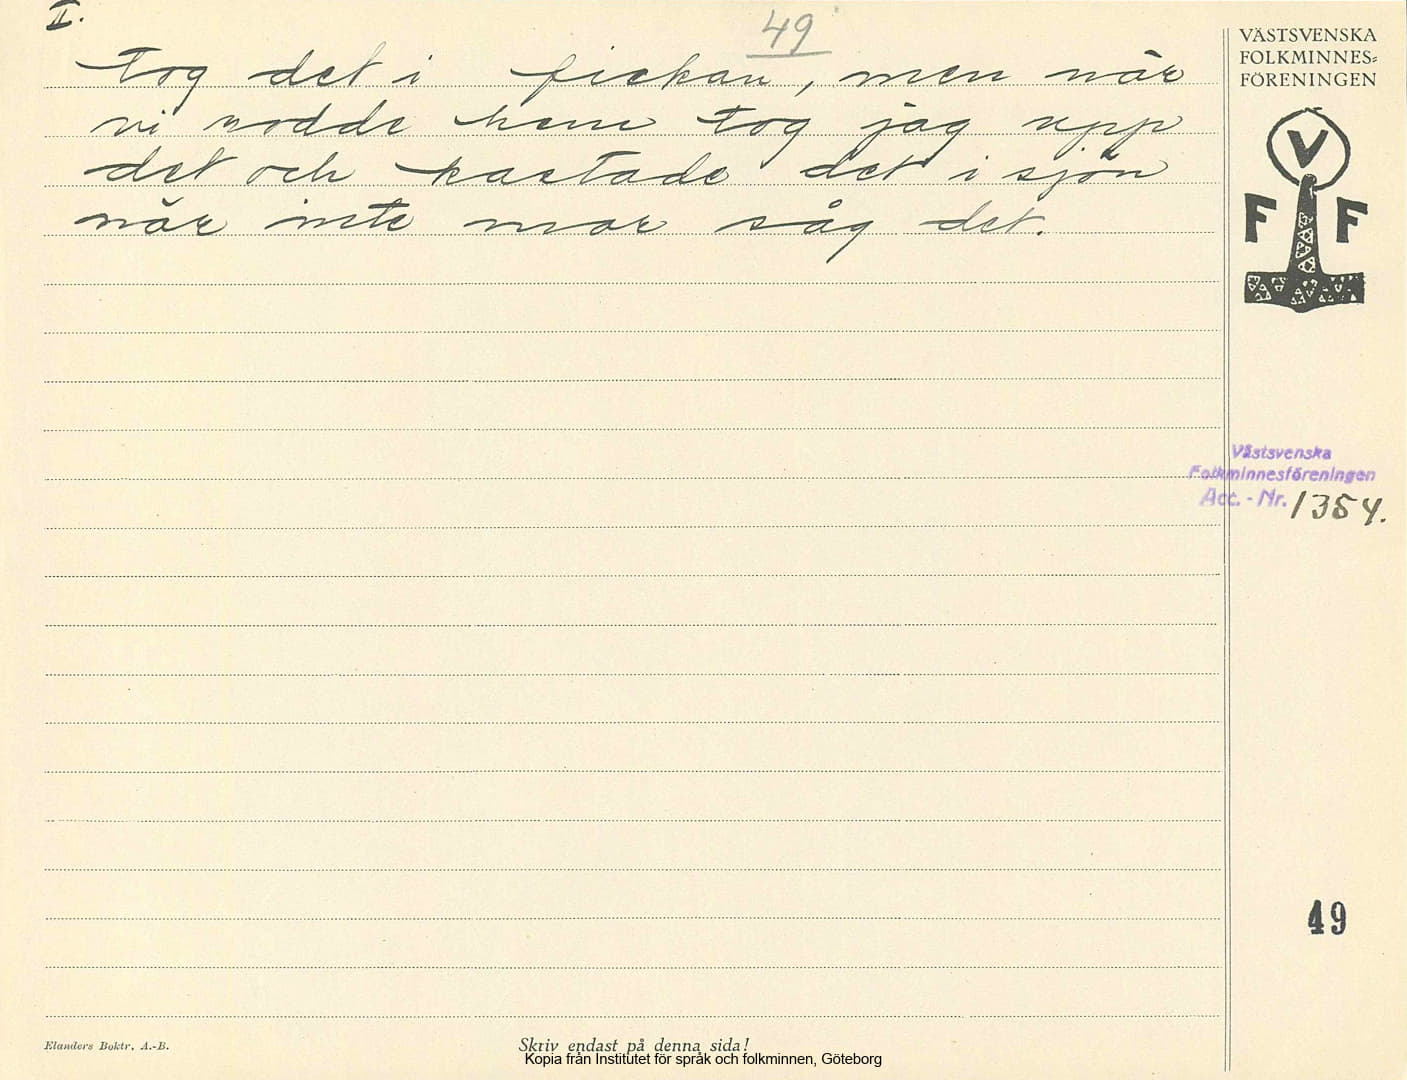 II.
49
tog det i fickan, men när
vi rodde hem tog jag upp
det och kastade det i sjön
när inte mor såg det.
VÄSTSVENSKA
FOLKMINNES=
FÖRENINGEN
V
F F
Västsvenska
Folkminnesföreningen
Acc. - Nr. 1354.
49
Elanders Boktr. A.-B.
Skriv endast på denna sida!
Kopia från Institutet för språk och folkminnen, Göteborg